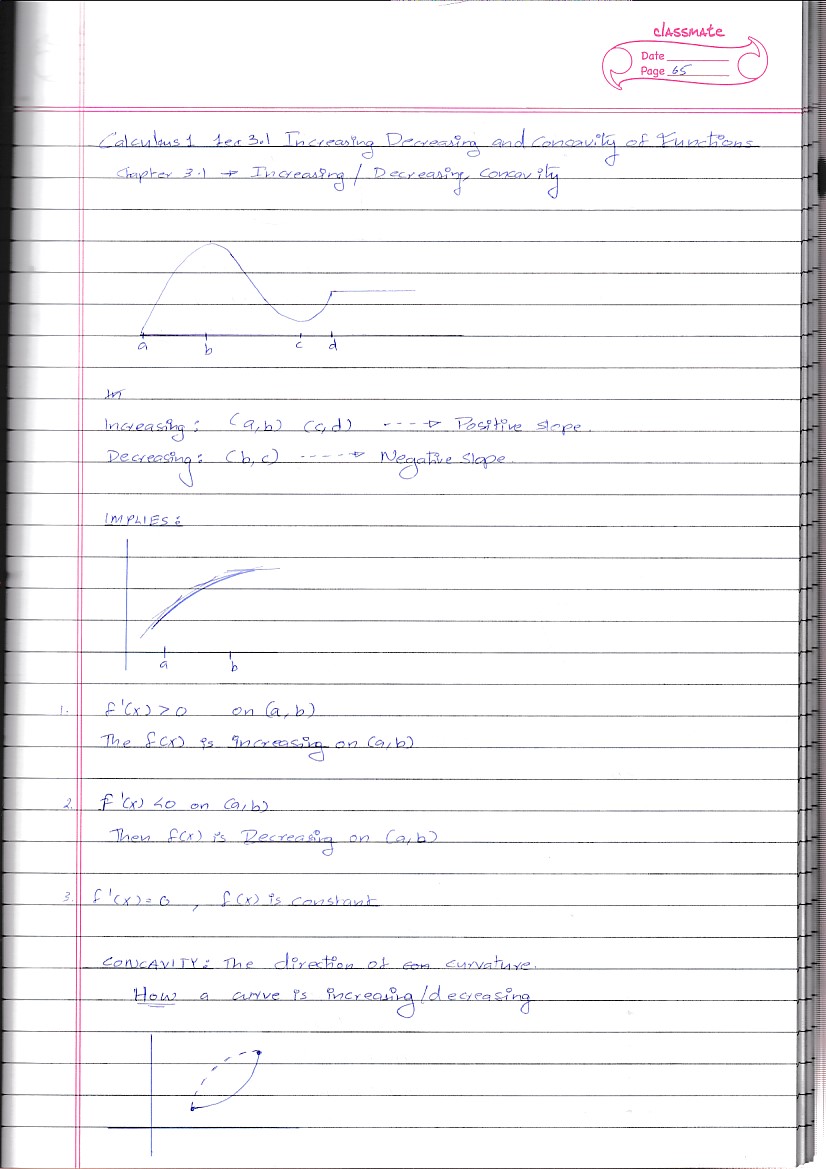 classmate
Date
Page 65
Calculus 1 Lec 3.1 Increasing Decreasing and Concavity of Functions
Chapter 3.1 → Increasing / Decreasing, Concavity
a b c d
Increasing: (a,b) (c,d) ----→ Positive slope.
Decreasing: (b,c) -----→ Negative slope.
IMPLIES:
a b
1. f'(x) > 0 on (a,b)
The f(x) is increasing on (a,b)
2. f'(x) <0 on (a,b)
Then f(x) is Decreasing on (a,b)
3. f'(x) = 0 , f(x) is constant
CONCAVITY: The direction of curvature.
How a curve is increasing/decreasing